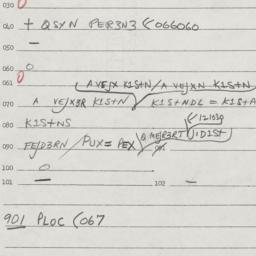 030
040 + QSYN PER3N3 <066060
050 —
060 0
061 AVEJX K1StN / A VEJXN K1StN
070 A VEJX3R K1StN / K1StNDL = K1StA
080 K1StNS <121030
090 FEJD3RN / PUX = PEX \ QMER3RT J1D1St
091
100 0
101 — 102 —
901 PLOC <067